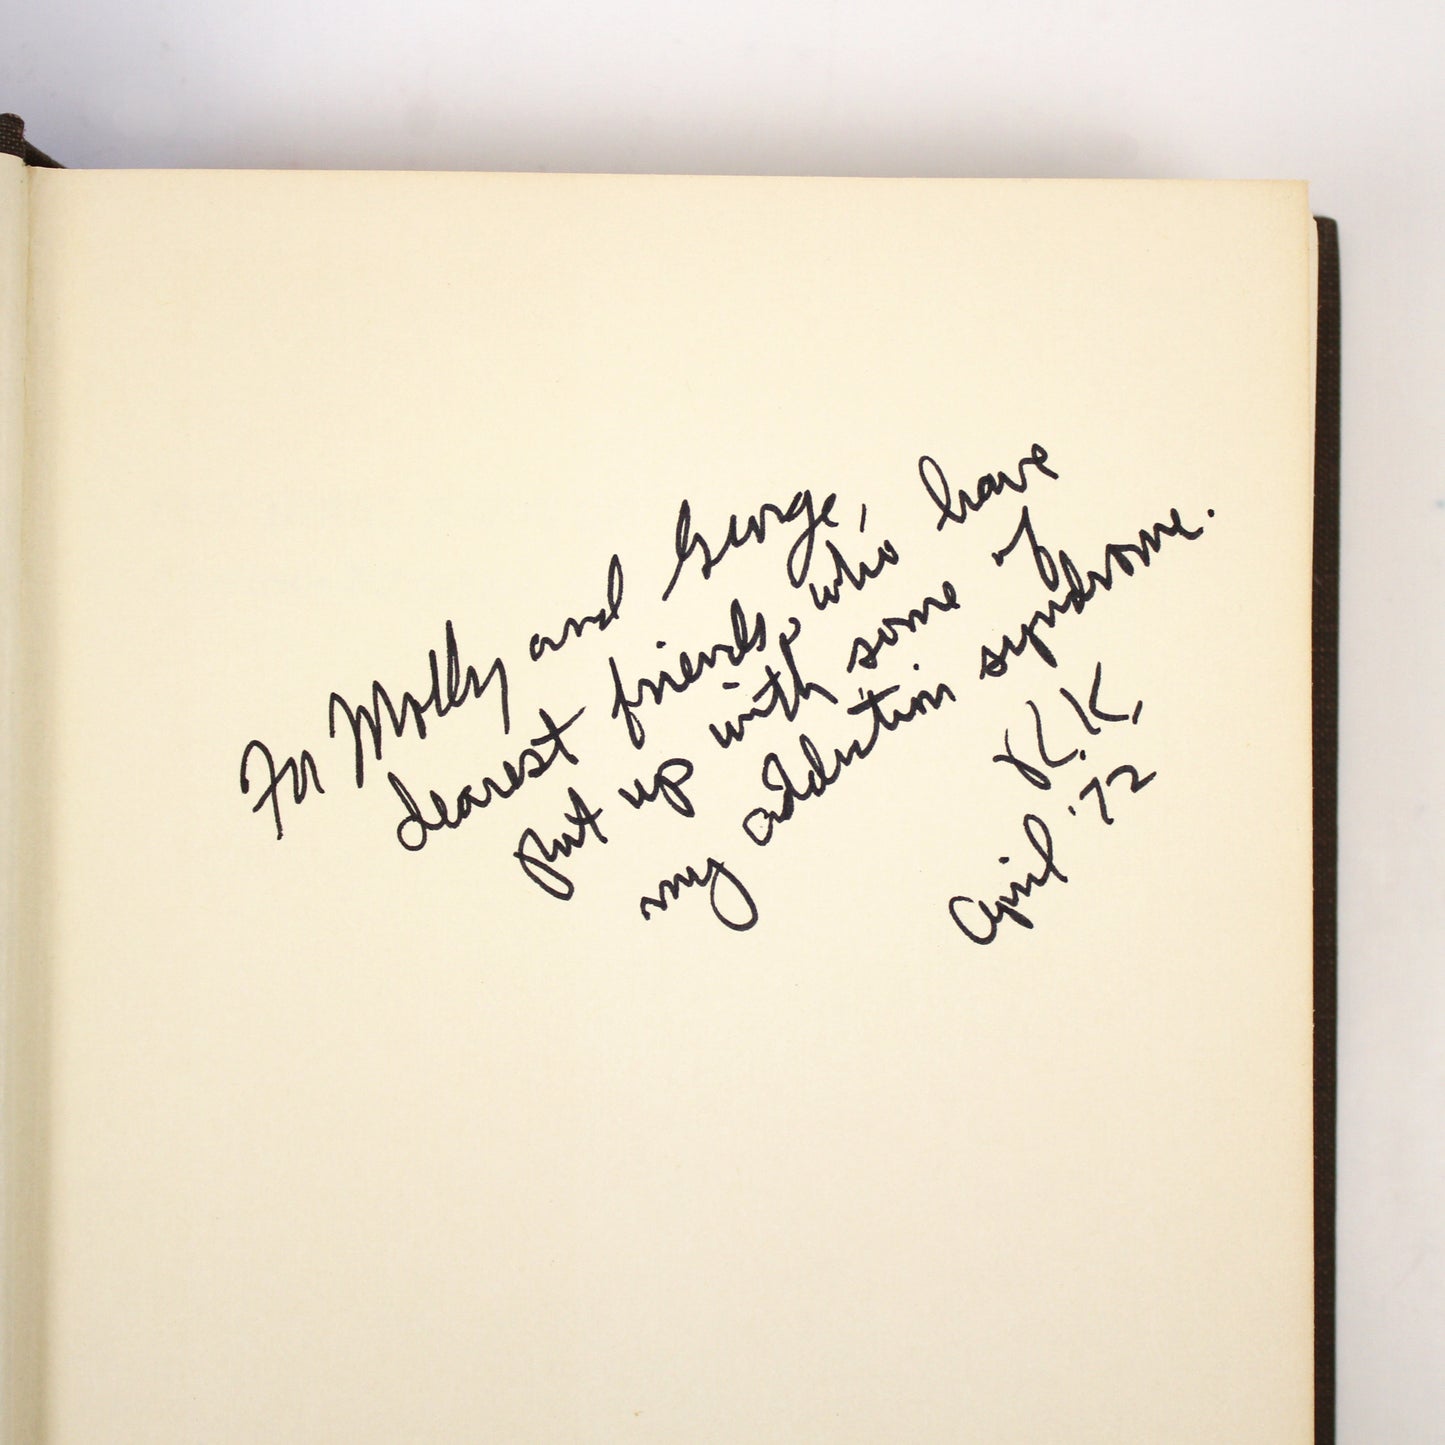 For Molly and George,
dearest friends, who have
put up with some of
my addiction syndrome.
R.K.
April '72